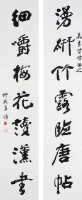 漫研竹露臨唐帖
細嚼梅花讀漢書